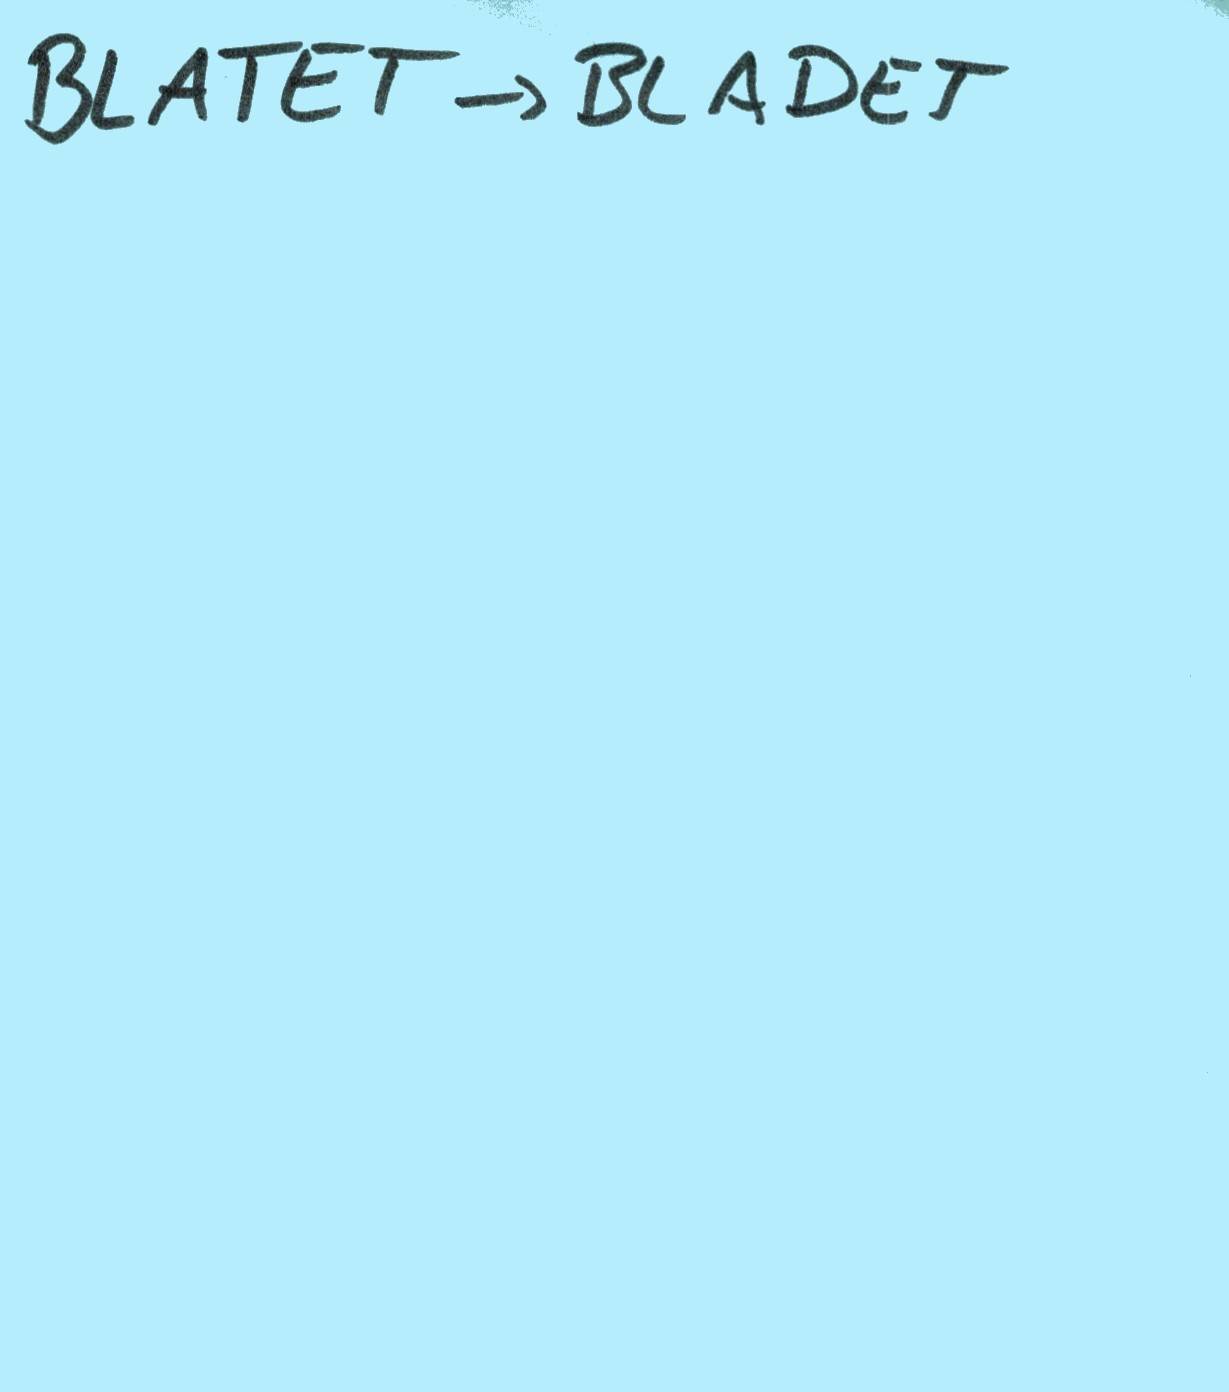 BLATET → BLADET